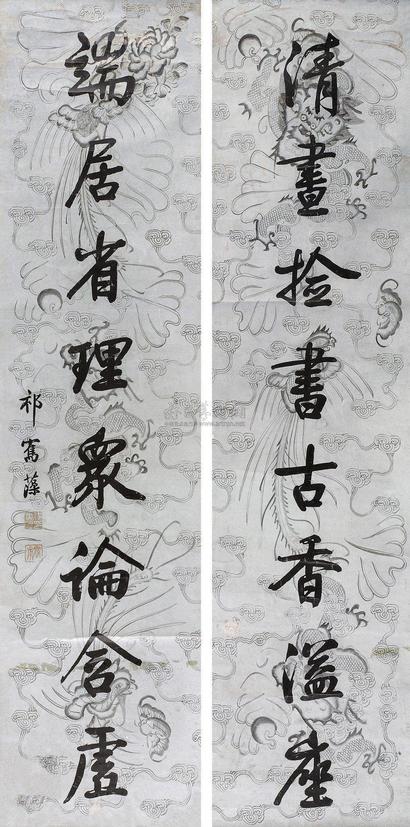 清晝捡書古香溢座
端居省理眾論含虛
祁寯藻